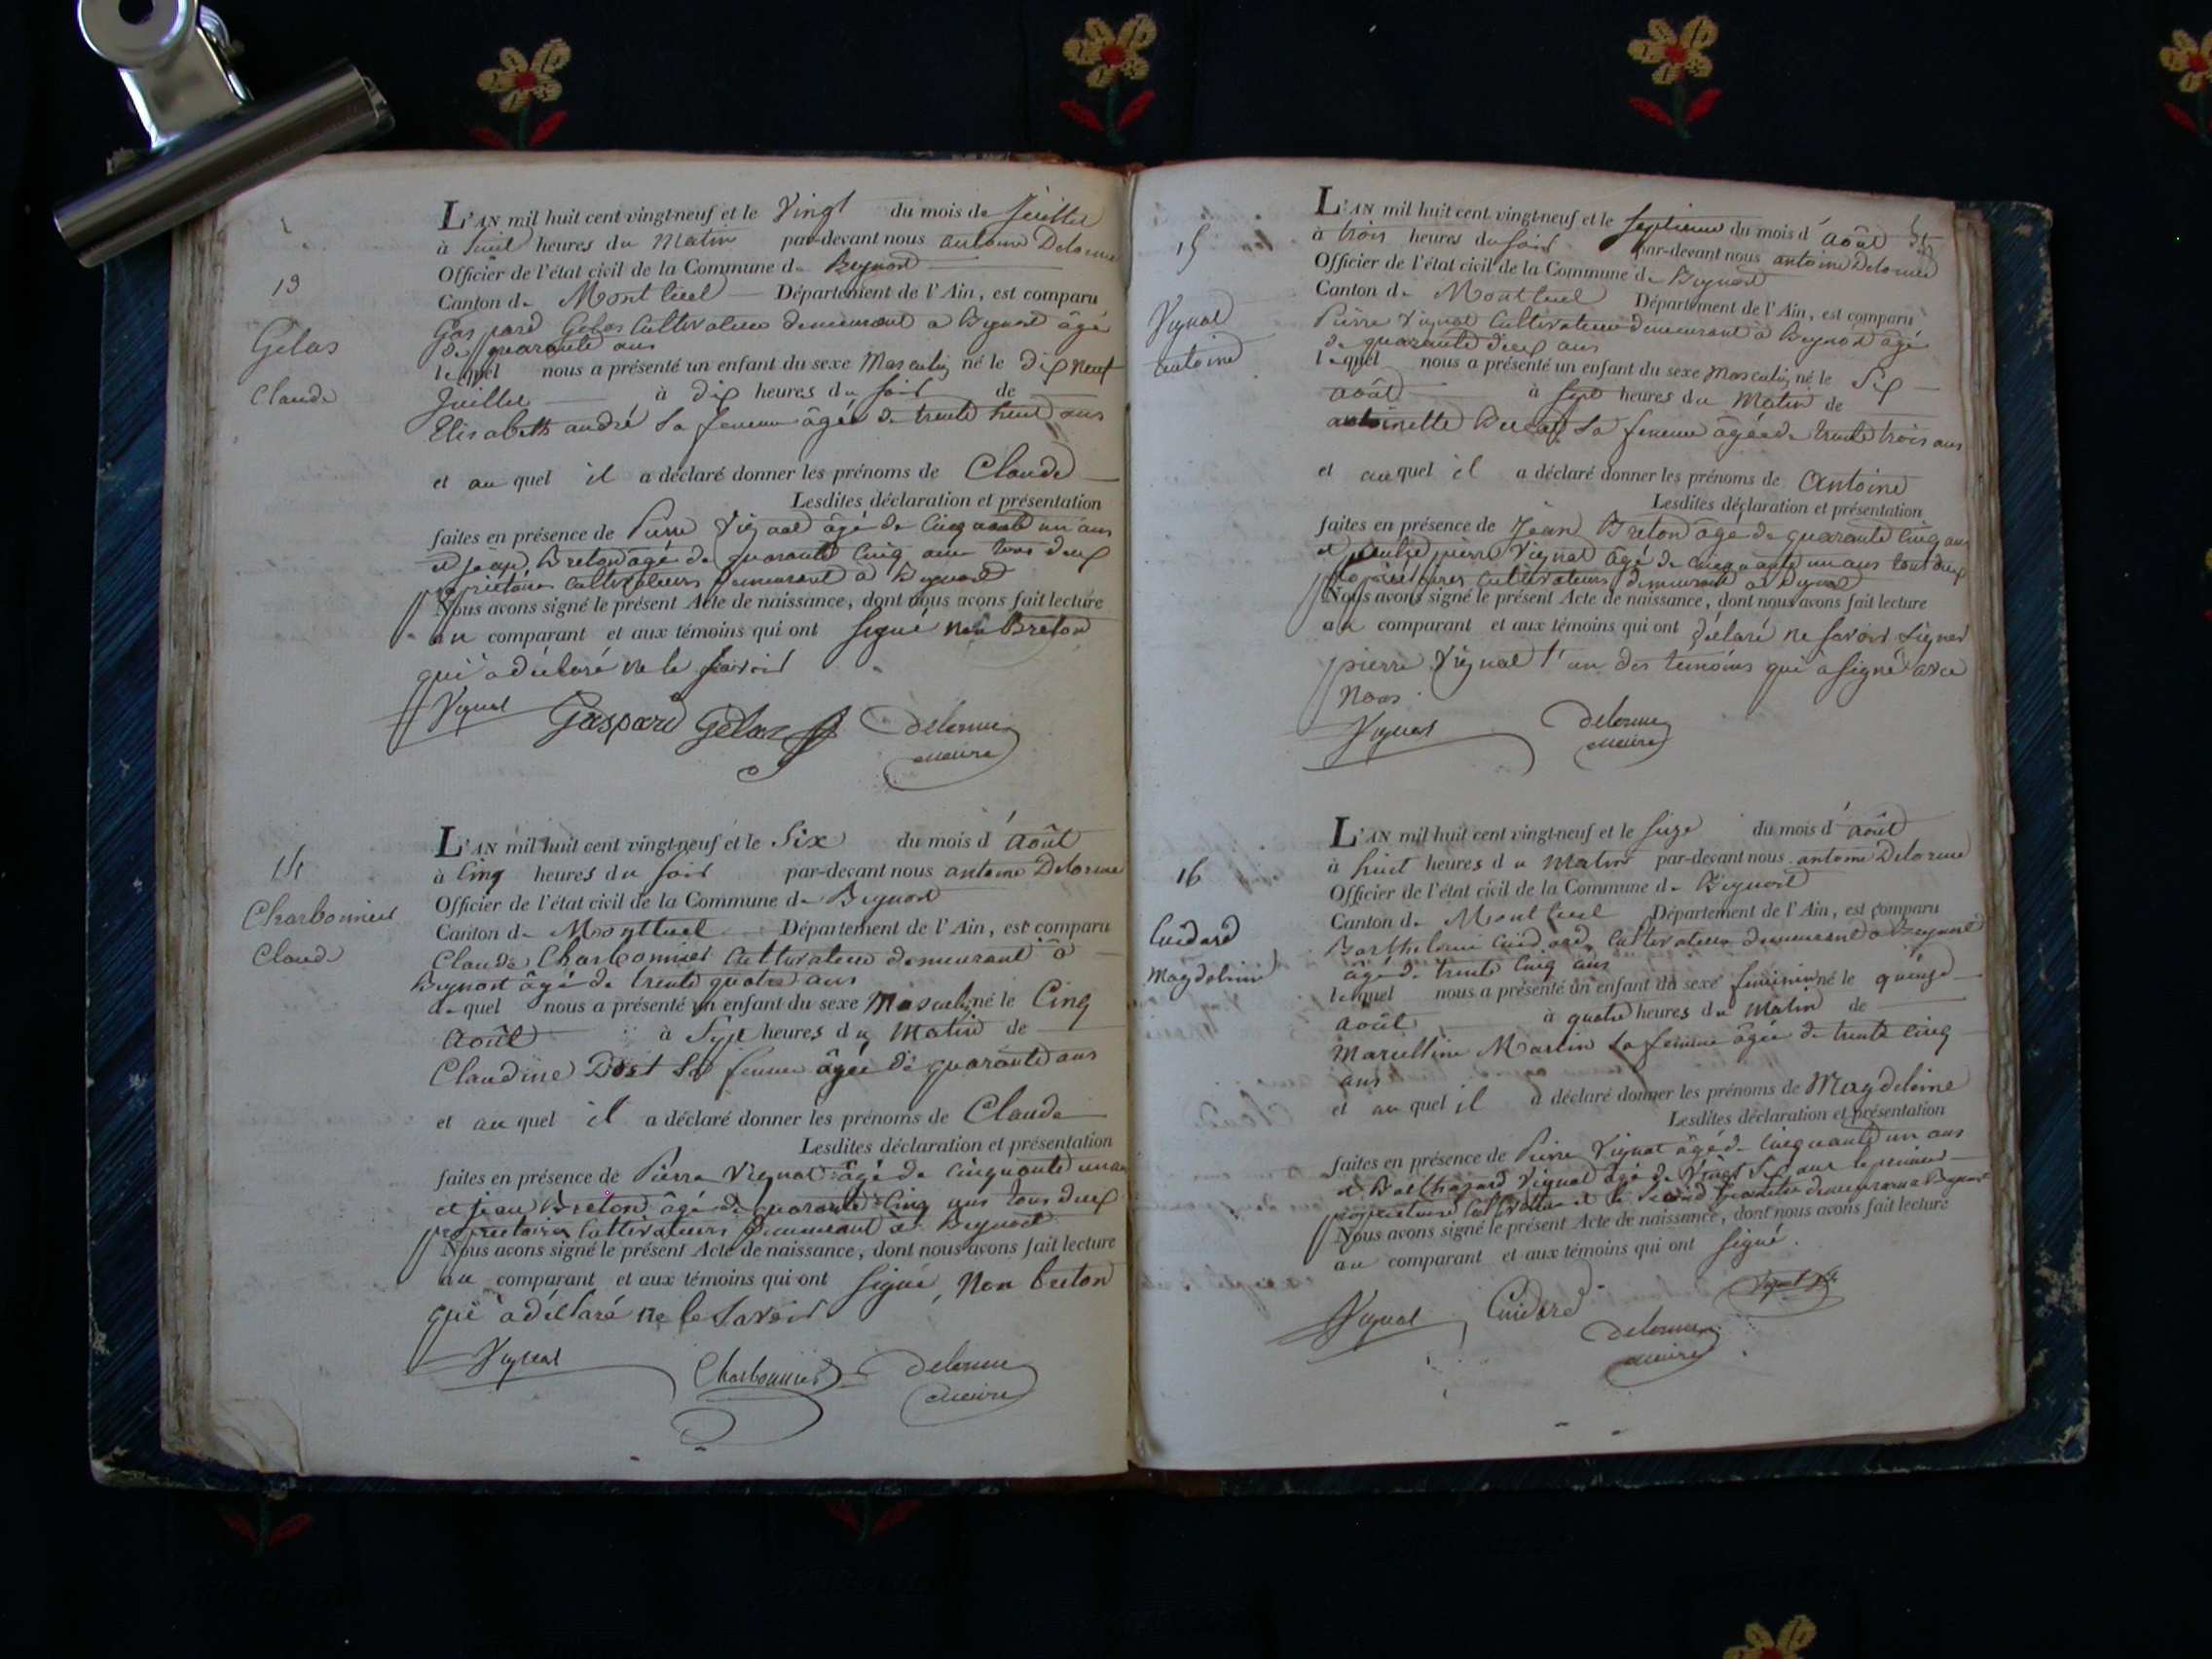 13
Gelas
Claude
L'AN mil huit cent vingt-neuf et le Vingt du mois de Juillet
à huit heures du Matin par-devant nous antoine Delorme
Officier de l'état civil de la Commune de Beynost
Canton de Montluel Département de l'Ain, est comparu
Gaspard Gelas Cultivateur demeurant a Beynost âgé
de quarante ans
lequel nous a présenté un enfant du sexe Masculin né le dix neuf
Juillet à dix heures du soir de
Elisabeth andré Sa femme âgée de trente huit ans
et au quel il a déclaré donner les prénoms de Claude
Lesdites déclaration et présentation
faites en présence de Pierre Vignat âgé de Cinquante un ans
et jean Breton âgé de quarante Cinq ans tous deux
propriétaires Cultivateurs demeurant à Beynost
Nous avons signé le présent Acte de naissance, dont nous avons fait lecture
au comparant et aux témoins qui ont signé non Breton
qui a déclaré ne le savoir
Vignat Gaspard Gelas Delorme
maire
14
Charbonnier
Claude
L'AN mil huit cent vingt-neuf et le Six du mois d'août
à Cinq heures du soir par-devant nous antoine Delorme
Officier de l'état civil de la Commune de Beynost
Canton de Montluel Département de l'Ain, est comparu
Claude Charbonnier Cultivateur demeurant à
Beynost âgé de trente quatre ans
lequel nous a présenté un enfant du sexe Masculin né le Cinq
Août à Sept heures du Matin de
Claudine Sa femme âgée de quarante ans
et au quel il a déclaré donner les prénoms de Claude
Lesdites déclaration et présentation
faites en présence de Pierre Vignat âgé de Cinquante un ans
et jean Breton âgé de quarante Cinq ans tous deux
propriétaires Cultivateurs demeurant à Beynost
Nous avons signé le présent Acte de naissance, dont nous avons fait lecture
au comparant et aux témoins qui ont signé, Non breton
qui a déclaré ne le Savoir
Vignat Charbonnier Delorme
maire
15
Vignat
antoine
L'AN mil huit cent vingt-neuf et le septieme du mois d'août
à trois heures du soir par-devant nous antoine Delorme
Officier de l'état civil de la Commune de Beynost
Canton de Montluel Département de l'Ain, est comparu
Pierre Vignat Cultivateur demeurant à Beynost âgé
de quarante deux ans
lequel nous a présenté un enfant du sexe Masculin né le Six
août à sept heures du Matin de
antoinette Sa femme âgée de trente trois ans
et au quel il a déclaré donner les prénoms de Antoine
Lesdites déclaration et présentation
faites en présence de Jean Breton âgé de quarante Cinq ans
et pierre Vignat âgé de cinquante un ans tous deux
propriétaires cultivateurs demeurant à Beynost
Nous avons signé le présent Acte de naissance, dont nous avons fait lecture
au comparant et aux témoins qui ont déclaré ne savoir signer
pierre Vignat l'un des temoins qui a signé avec
Nous.
Vignat Delorme
maire
16
Cuidard
Magdeleine
L'AN mil huit cent vingt-neuf et le Seize du mois d'août
à huit heures du Matin par-devant nous antoine Delorme
Officier de l'état civil de la Commune de Beynost
Canton de Montluel Département de l'Ain, est comparu
Barthelemi Cuidard Cultivateur demeurant à Beynost
âgé de trente Cinq ans
lequel nous a présenté un enfant du sexe feminin né le quinze
août à quatre heures du Matin de
Marcelline Martin Sa femme âgée de trente cinq
ans
et au quel il a déclaré donner les prénoms de Magdeleine
Lesdites déclaration et présentation
faites en présence de Pierre Vignat âgé de Cinquante un ans
et Balthazard Vignat âgé de Vingt Six ans le premier
propriétaire Cultivateur et le Second demeurant à Beynost
Nous avons signé le présent Acte de naissance, dont nous avons fait lecture
au comparant et aux témoins qui ont signé.
Vignat Cuidard Vignat
Delorme
maire